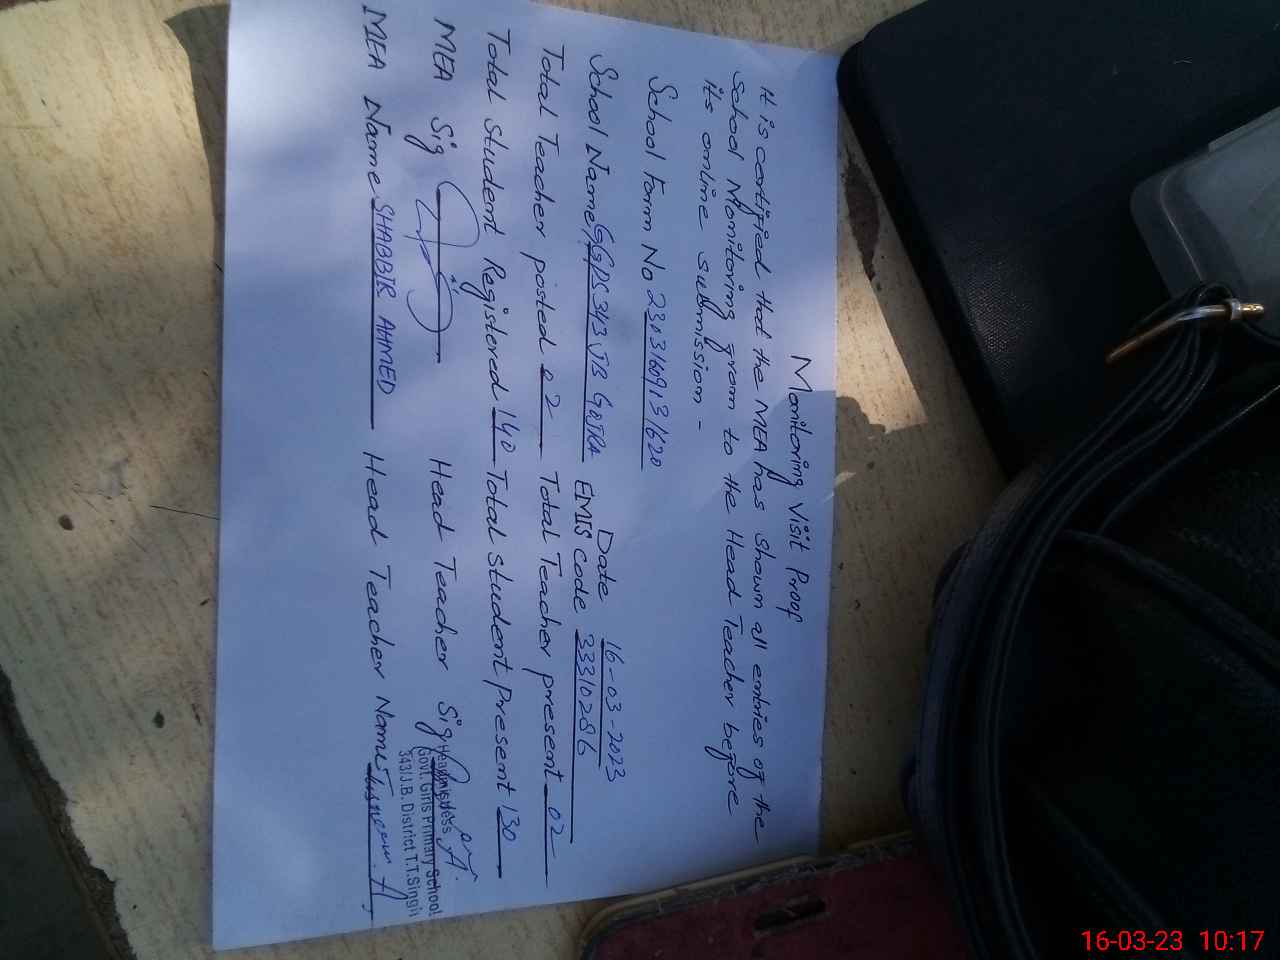 Monitoring Visit Proof
It is certified that the MEA has shown all entries of the
School Monitoring from to the Head Teacher before
its online submission -
School Form No 2303169131620
Date 16-03-2023
School Name GGPS 343 JB GOJRA EMIS Code 33310286
Total Teacher posted 02 Total Teacher present 02
Total Student Registered 140 Total Student Present 130
MEA Sig Head Teacher Sig
Headmistress
Govt. Girls Primary School
343/J.B. District T.T.Singh
MEA Name SHABBIR AHMED Head Teacher Name
16-03-23 10:17